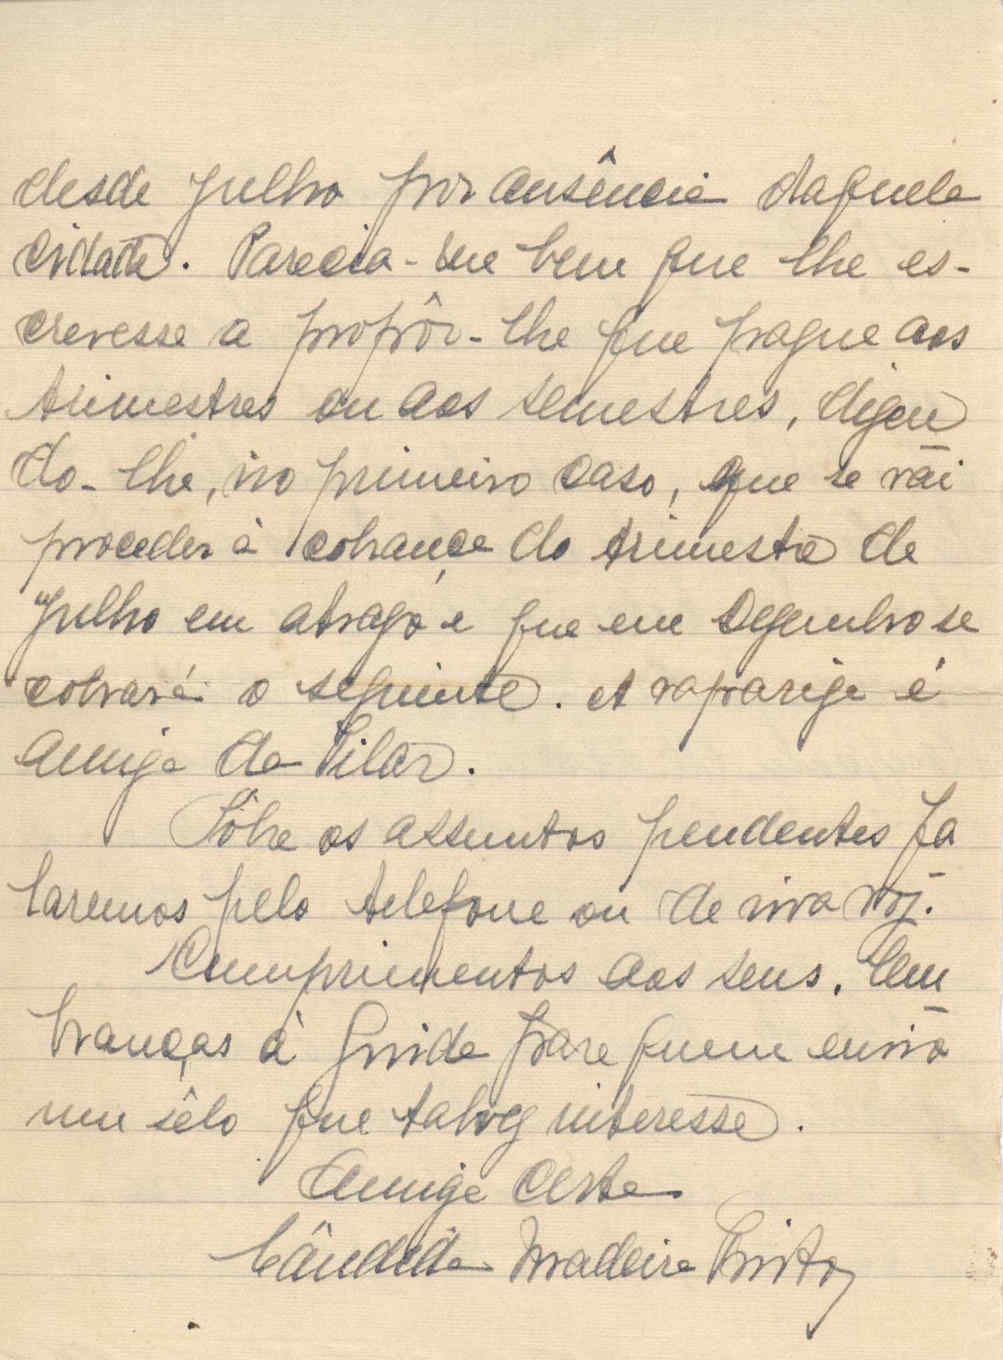 desde Julho por ausência daquela
cidade. Parecia-me bem que lhe es-
crevesse a propôr-lhe que pague aos
trimestres ou aos semestres, dizen
do-lhe, no primeiro caso, que se vái
proceder à cobrança do trimestre de
Julho em atrazo e que em Dezembro se
cobrará o seguinte. A rapariga é
amiga da Pilar.
Sôbre os assuntos pendentes fa
laremos pelo telefone ou de viva voz.
Cumprimentos aos seus. Lem
branças à Guida para quem envio
um sêlo que talvez interesse.
Amiga certa
Cândida Madeira Pinto